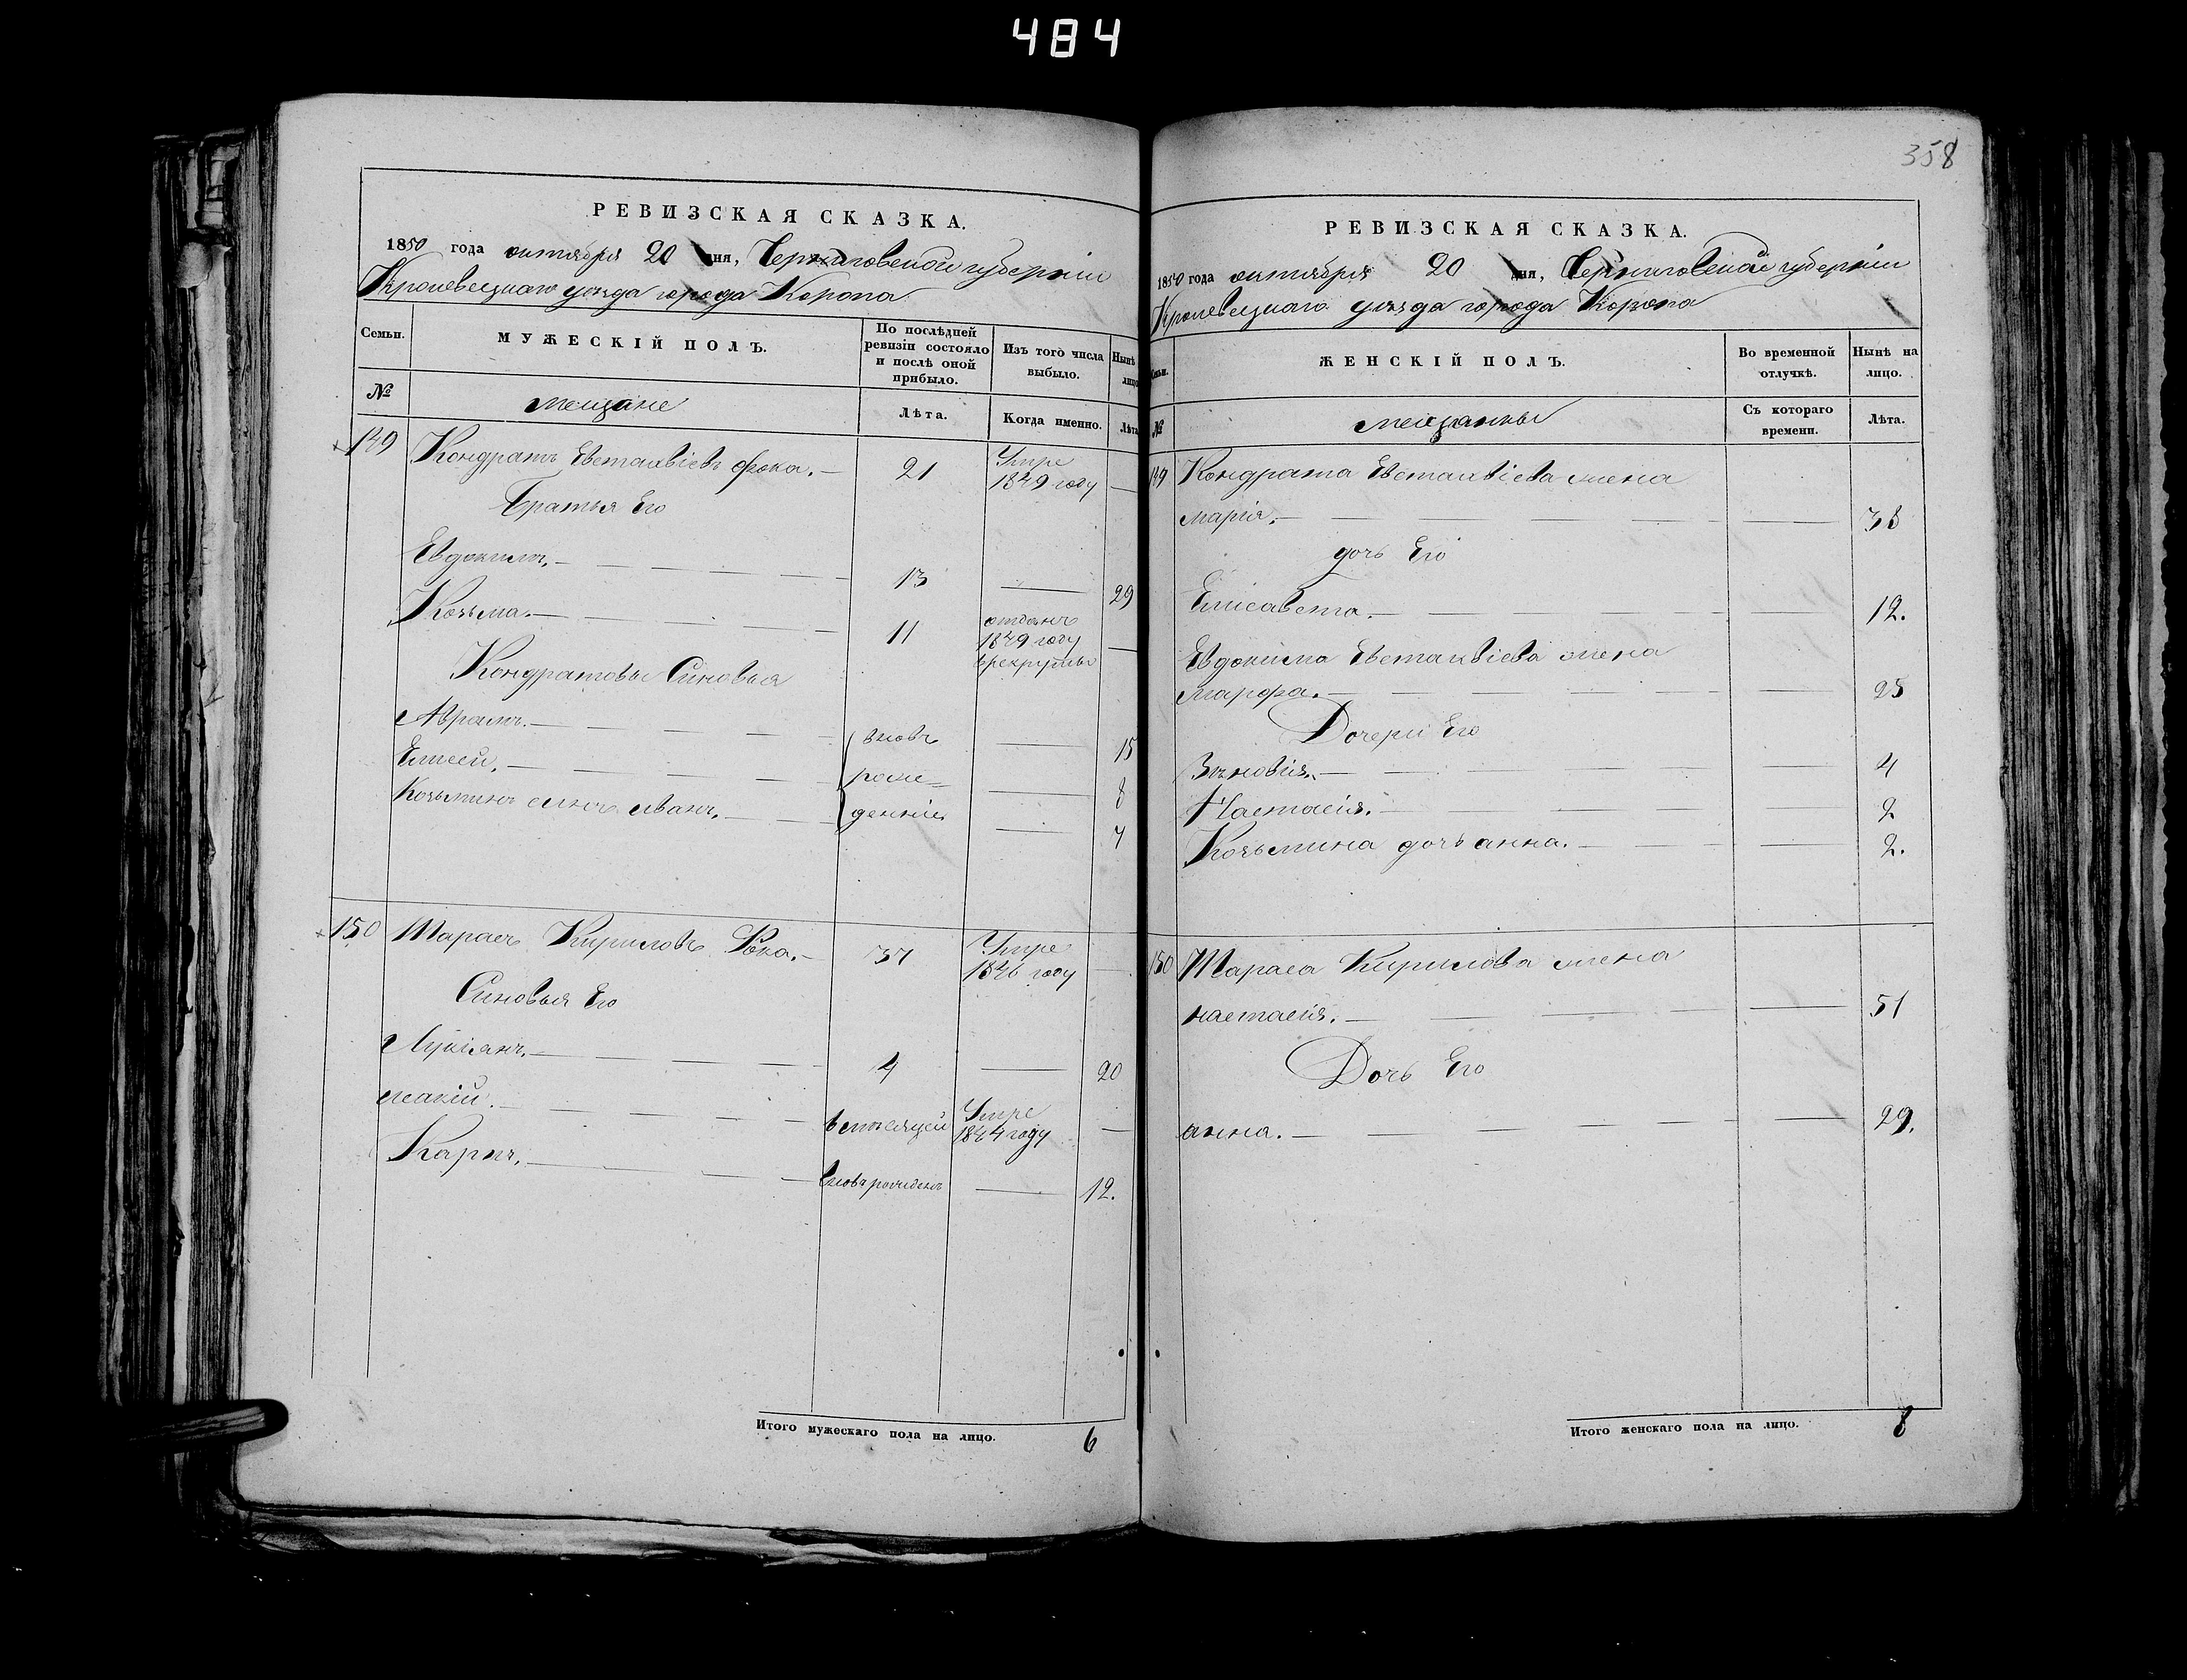 484
358
РЕВИЗСКАЯ СКАЗКА.
1850 года октября 20 дня, Черниговской губерніи
Кролевецкаго уезда города Коропа
Семьи.
МУЖЕСКІЙ ПОЛЪ.
По послѣдней ревизіи состояло и послѣ оной прибыло.
Изъ того числа выбыло.
Нынѣ лицо
№
мещане
Лѣта.
Когда именно.
Лѣта
149 Кондратъ Евстахвіевъ Фока. — 21 Умре 1849 году —
Братья Его
Евдокимъ. — 13 — 29
Козьма. — 11 отданъ 1849 году в рекруты —
Кондратовы Синовья
Аврамъ. — вновь — 15
Елисей. — рож= — 8
Козьминъ синъ Иванъ. — денніе — 7
150 Тарасъ Кириловъ Фока. — 37 Умре 1846 году —
Синовья Его
Лукіянъ. — 4 — 20
Исакій. — Умре 1844 году —
Карпъ. — вновь рожденъ — 12.
Итого мужескаго пола на лицо. 6
РЕВИЗСКАЯ СКАЗКА.
1850 года октября 20 дня, Черниговской губерніи
Кролевецкаго уезда города Коропа
ЖЕНСКІЙ ПОЛЪ.
Во временной отлучкѣ.
Нынѣ на лицо.
№
мещанки
Съ котораго времени.
Лѣта.
149 Кондрата Евстахвіева жена
Марія. — — 38
дочь Его
Елисавета. — — 12.
Евдокима Евстахвіева жена
Марфа. — — 25
Дочери Его
Зѣновія. — — 4
Настасія. — — 2
Козьмина дочь анна. — — 2.
150 Тараса Кирилова жена
настасія. — — 51
Дочь Его
анна. — — 29.
Итого женскаго пола на лицо. 8